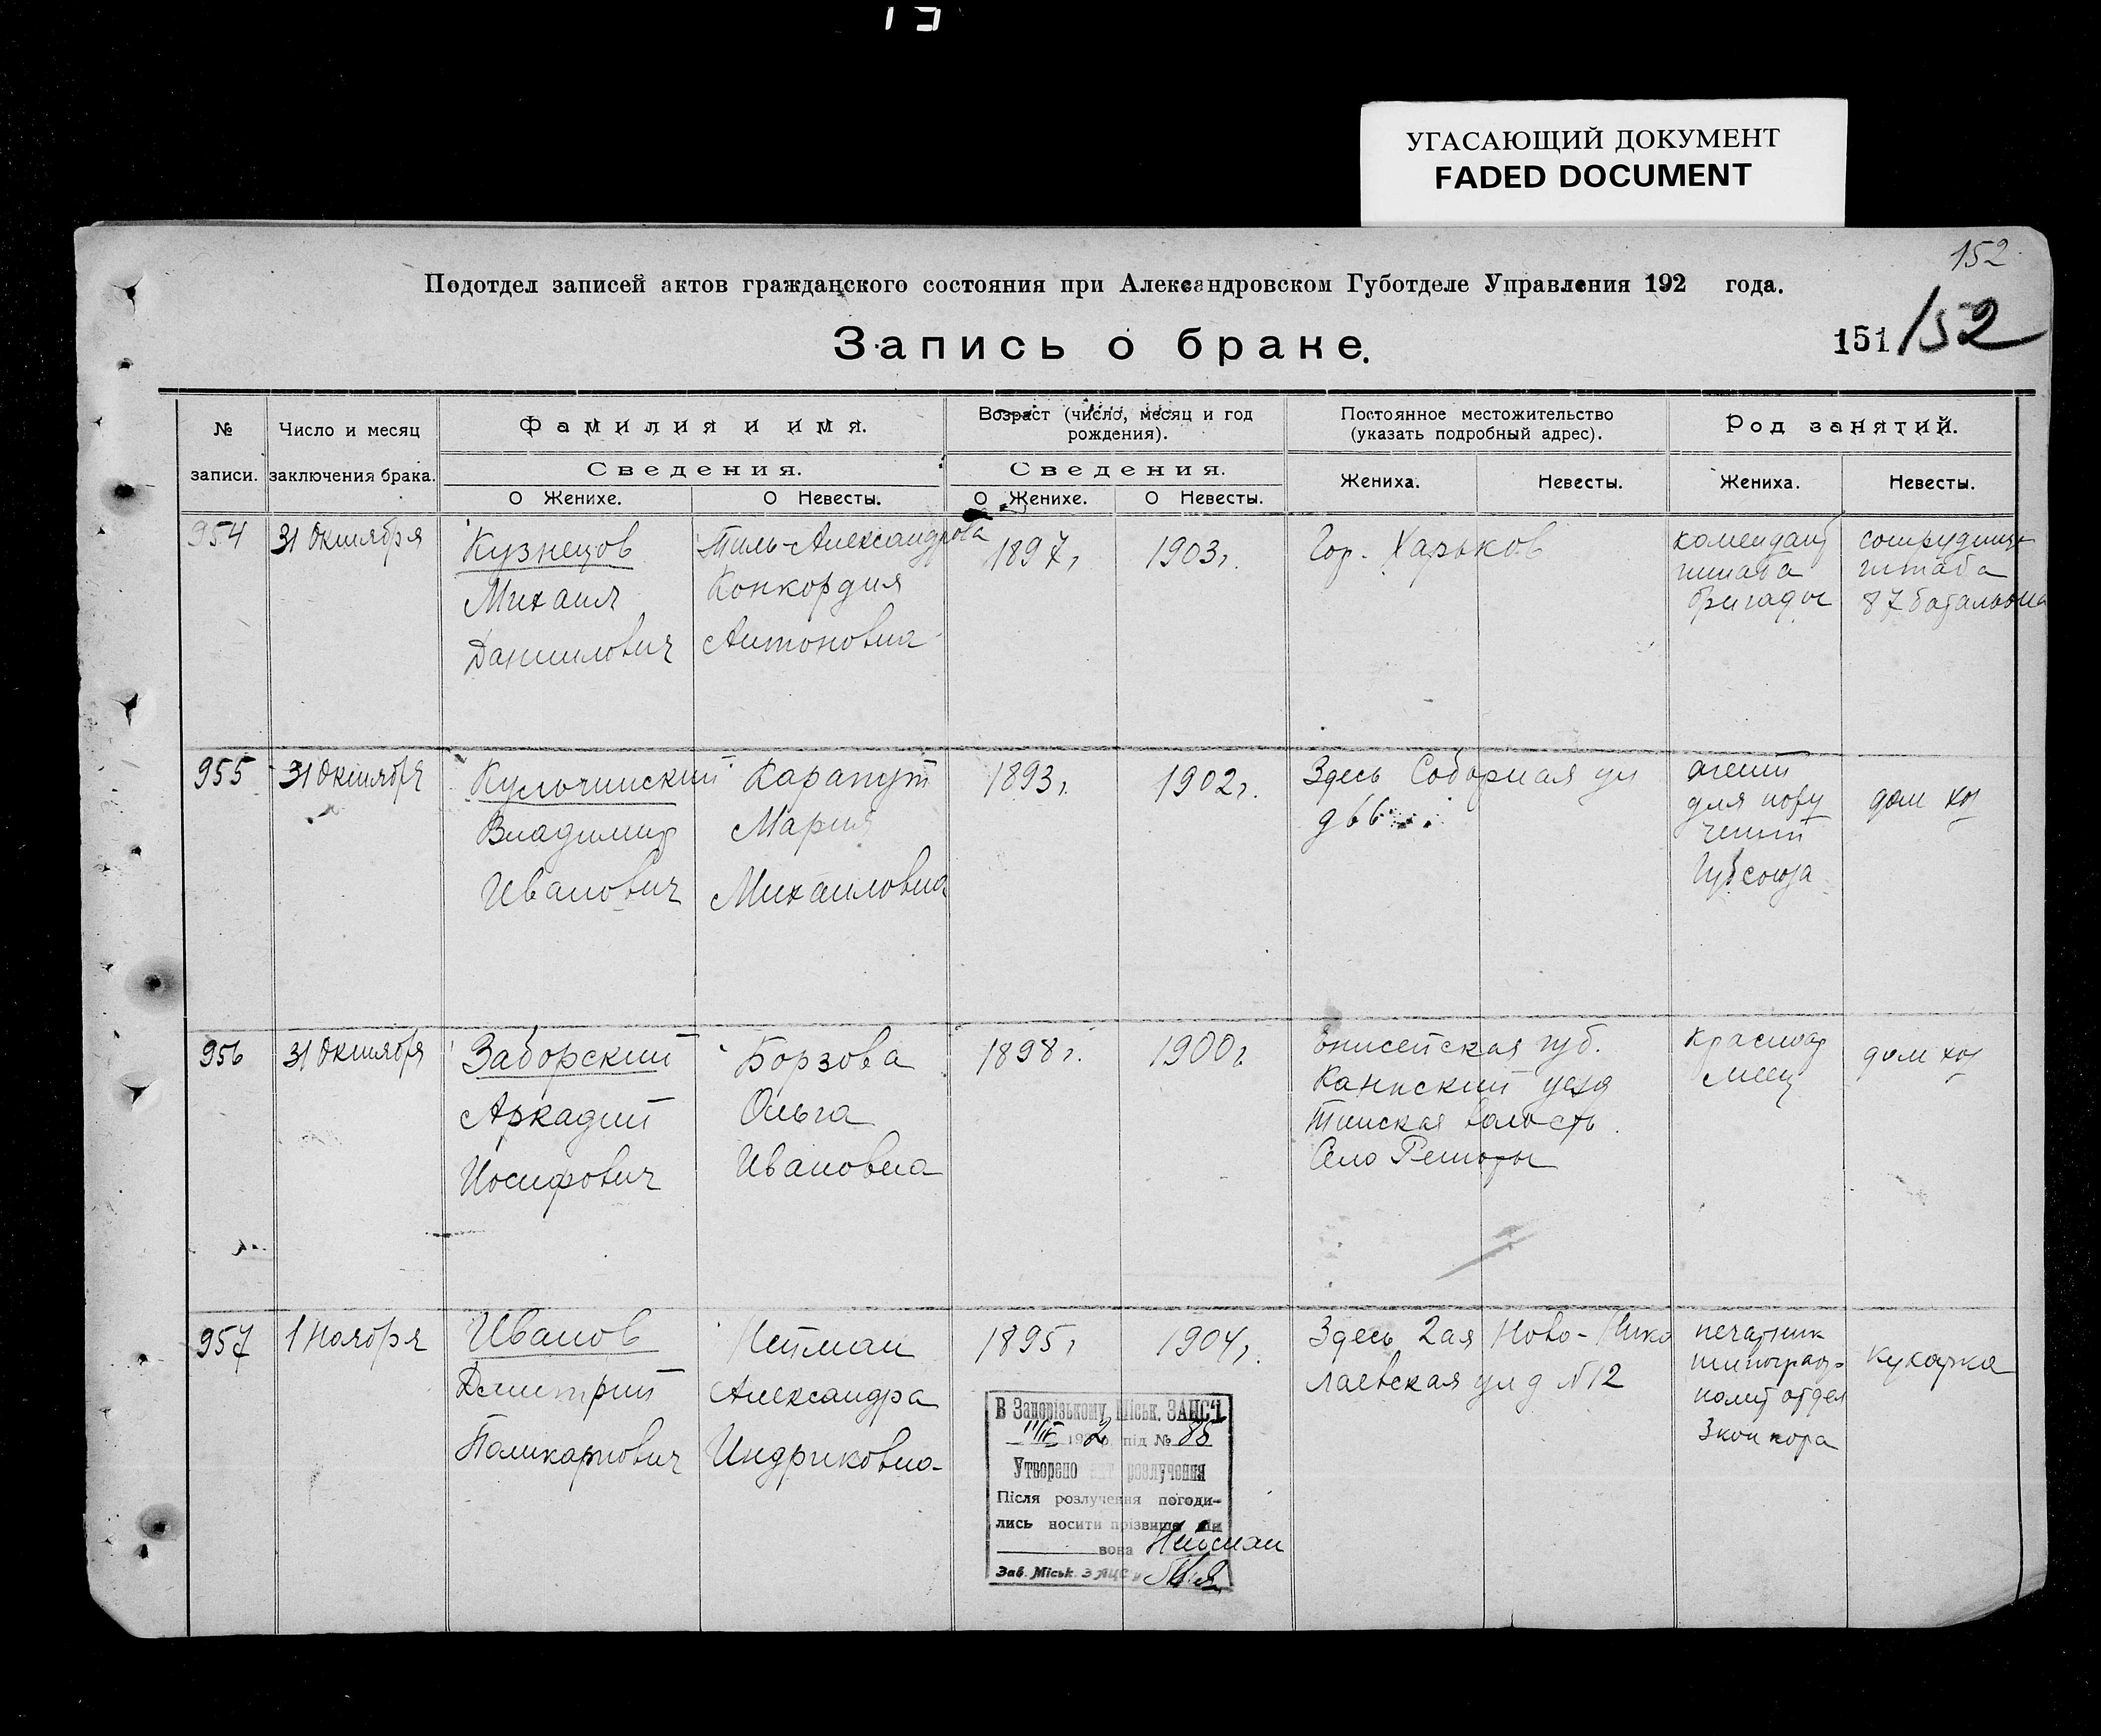 УГАСАЮЩИЙ ДОКУМЕНТ
FADED DOCUMENT
152
Подотдел записей актов гражданского состояния при Александровском Губотделе Управления 192 года.
Запись о браке.
151 152
№ записи.
Число и месяц заключения брака.
Фамилия и имя.
Сведения.
О Женихе.
О Невесты.
Возраст (число, месяц и год рождения).
Сведения.
О Женихе.
О Невесты.
Постоянное местожительство (указать подробный адрес).
Жениха.
Невесты.
Род занятий.
Жениха.
Невесты.
954
31 Октября
Кузнецов
Михаил
Даниилович
Тиль-Александрова
Конкордия
Антоновна
1897 г.
1903 г.
Гор. Харьков
комендант
штаба
бригады
штаба
87 батальона
955
31 Октября
Кульчинский
Владимир
Иванович
Карапут
Мария
Михаиловна
1893 г.
1902 г.
Здесь Соборная ул
д 66
агент
для пору
чений
Губсоюза
дом хоз
956
31 Октября
Заборский
Аркадий
Иосифович
Борзова
Ольга
Ивановна
1898 г.
1900 г.
Енисейская губ.
Канский уезд
Тинская волость
Село
Красноар
меец
дом хоз
957
1 Ноября
Иванов
Дмитрий
Поликарпович
Нейман
Александра
Индриковна
1895 г.
1904 г.
Здесь 2ая Ново-Нико
лаевская ул д №12
печатник
типограф
полит отдел
3 кон кора
кухарка
В Запорізькому Міськ. ЗАГСЧ
193 2 р. під № 85
Утворено акт розлучення
Після розлучення погоди-
лись носити прізвище він
вона Нейман
Зав. Міськ. ЗАЦС у